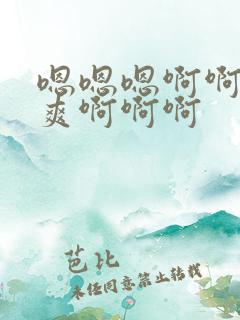 嗯嗯嗯啊啊
爽啊啊啊
芭比
未经同意禁止转载